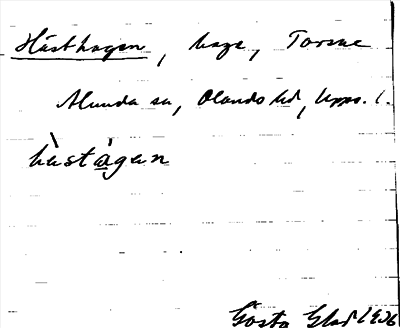 Hästhagen, hage, Torsne
Alunda sn, Olands hd, Upps. l.
hàstàgan
Gösta Glad 1936